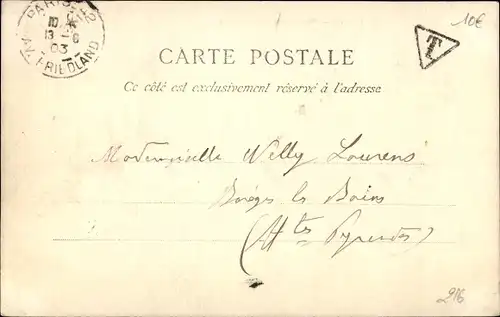 PARIS
10
13 -6
03
AV. FRIEDLAND
10€
T
CARTE POSTALE
Ce côté est exclusivement réservé à l'adresse
Mademoiselle Nelly Lourens
Barèges les Bains
(Htes Pyrenées)
216